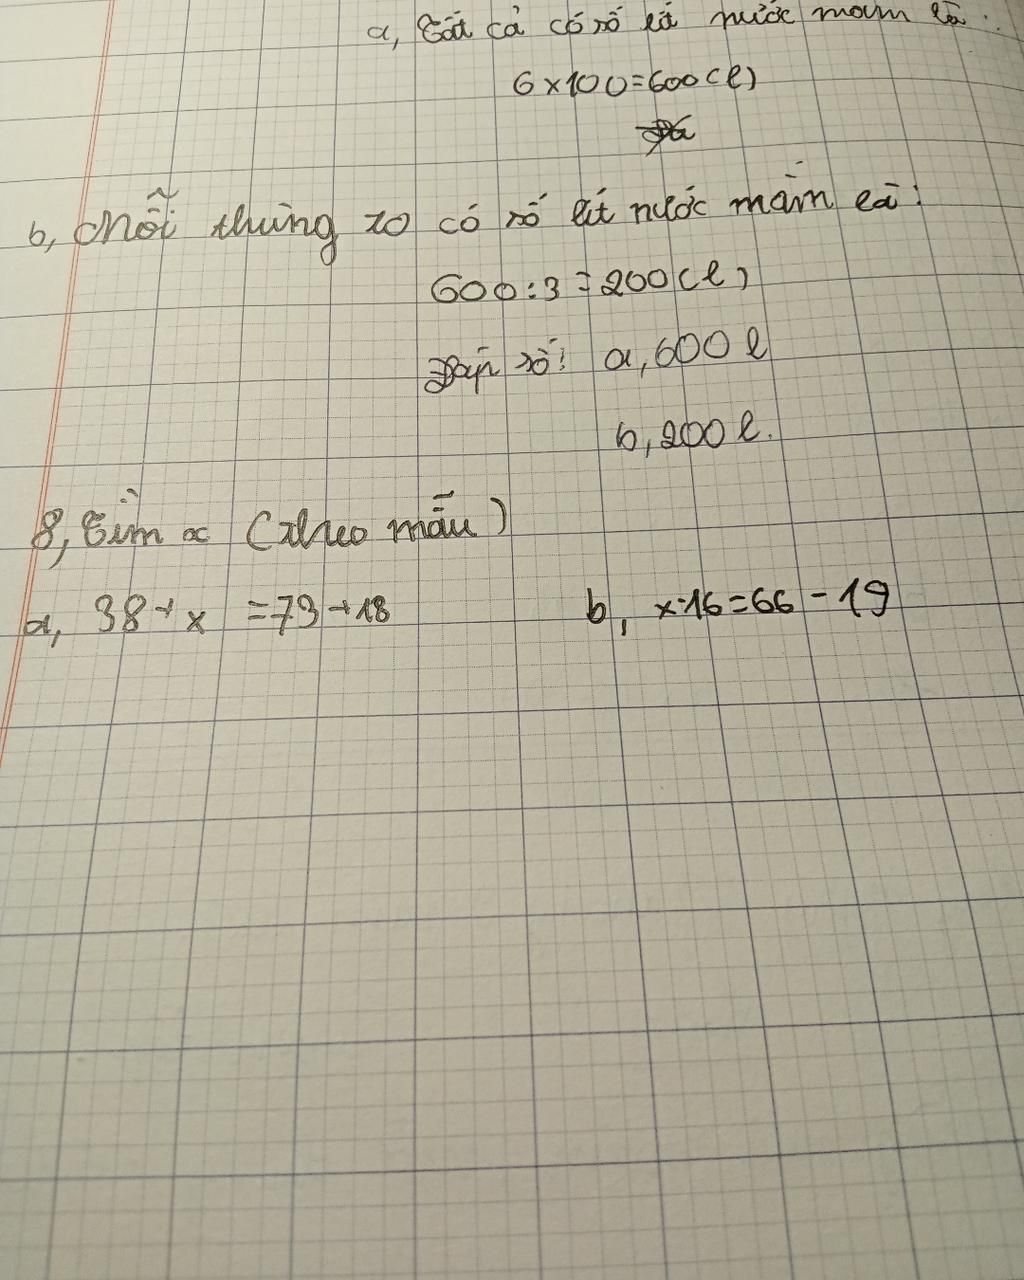 a, Tất cả có số lít nước mắm là:
6 x 100 = 600 (l)
b, Mỗi thùng to có số lít nước mắm là:
600 : 3 = 200 (l)
Đáp số: a, 600 l
b, 200 l.
8, Tìm x (theo mẫu)
a, 38 + x = 73 + 18 b, x - 16 = 66 - 19